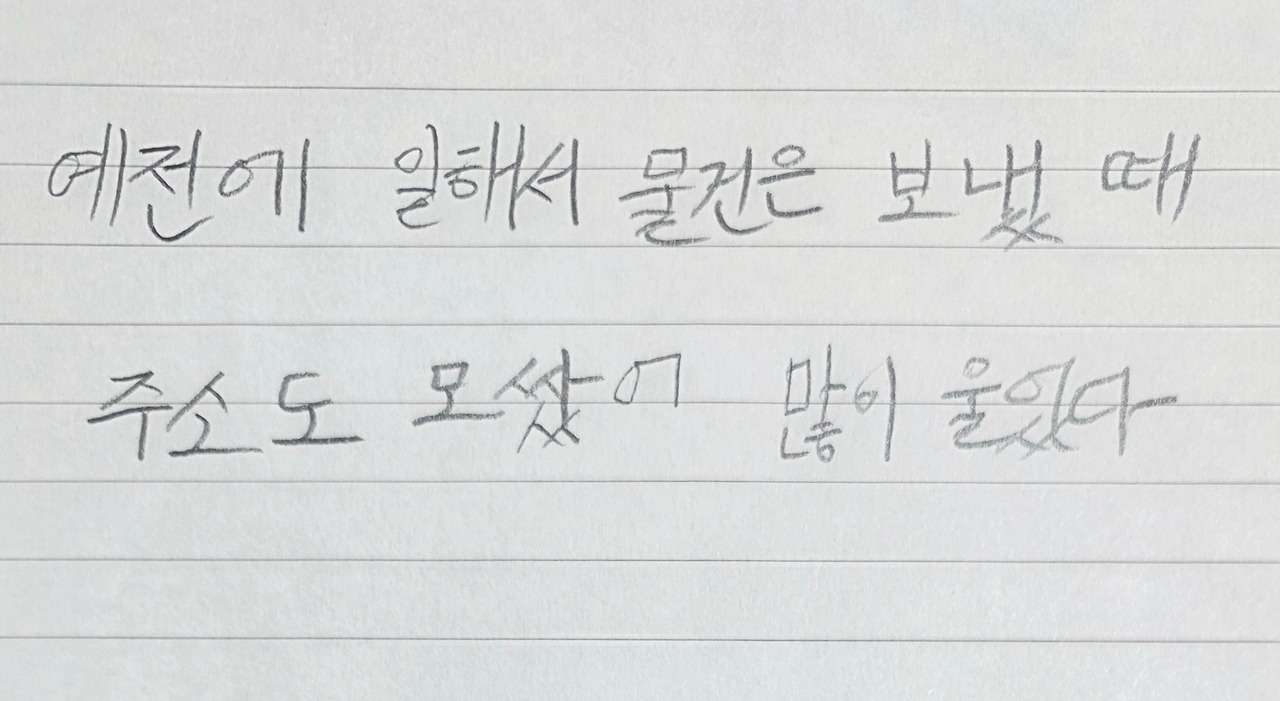 예전에 일해서 물건은 보냈 때
주소도 모쌌어 많이 울었다